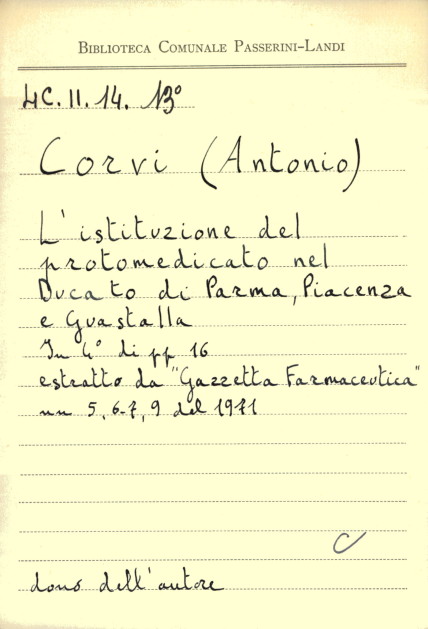 BIBLIOTECA COMUNALE PASSERINI-LANDI
4C. II. 14. 13°
Corvi (Antonio)
L'istituzione del
protomedicato nel
Ducato di Parma, Piacenza
e Guastalla
In 4° di pp 16
estratto da "Gazzetta Farmaceutica"
nn 5, 6-7, 9 del 1971
C
dono dell'autore